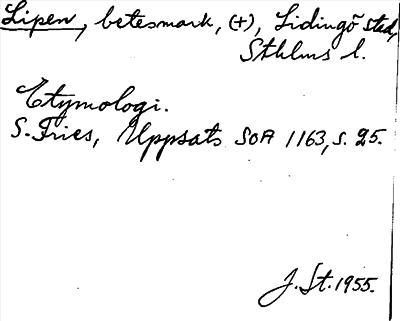 Lipen, betesmark, (+), Lidingö stad,
Sthlms l.
Etymologi.
S. Fries, Uppsats SOA 1163, s. 25.
J. St. 1955.